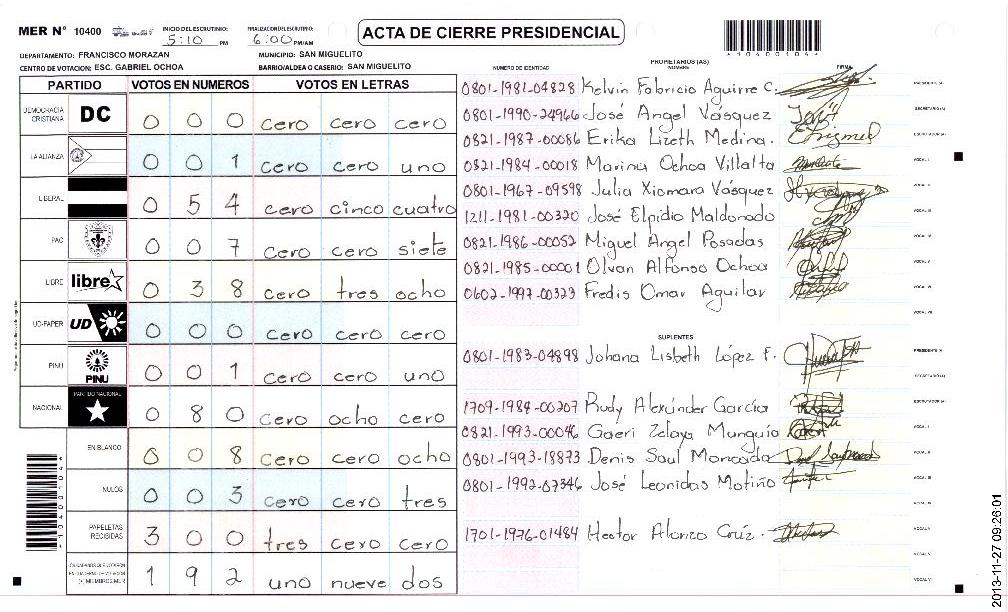 MER N° 10400
INICIO DEL ESCRUTINIO: 5:10 PM
FINALIZACION DEL ESCRUTINIO: 6:00 PM/AM
ACTA DE CIERRE PRESIDENCIAL
*10400104*
DEPARTAMENTO: FRANCISCO MORAZAN
MUNICIPIO: SAN MIGUELITO
CENTRO DE VOTACION: ESC. GABRIEL OCHOA
BARRIO/ALDEA O CASERIO: SAN MIGUELITO
PARTIDO VOTOS EN NUMEROS VOTOS EN LETRAS
DEMOCRACIA CRISTIANA DC 0 0 0 cero cero cero
LA ALIANZA 0 0 1 cero cero uno
LIBERAL 0 5 4 cero cinco cuatro
PAC 0 0 7 cero cero siete
LIBRE libre 0 3 8 cero tres ocho
UD-FAPER UD 0 0 0 cero cero cero
PINU PINU 0 0 1 cero cero uno
NACIONAL PARTIDO NACIONAL 0 8 0 cero ocho cero
EN BLANCO 0 0 8 cero cero ocho
NULOS 0 0 3 cero cero tres
PAPELETAS RECIBIDAS 3 0 0 tres cero cero
CIUDADANOS QUE VOTARON EN CUADERNO DE VOTACION (+) MIEMBROS MER 1 9 2 uno nueve dos
*10400104*
NUMERO DE IDENTIDAD PROPIETARIOS (AS) NOMBRE FIRMA
0801-1981-04828 Kelvin Fabricio Aguirre C. PRESIDENTE (A)
0801-1990-24966 José Angel Vásquez SECRETARIO (A)
0821-1987-00086 Erika Lizeth Medina. ESCRUTADOR (A)
0821-1984-00018 Marina Ochoa Villalta VOCAL I
0801-1967-09598 Julia Xiomara Vásquez VOCAL II
1211-1981-00320 José Elpidio Maldonado VOCAL III
0821-1986-00052 Miguel Angel Posadas VOCAL IV
0821-1985-00001 Olvan Alfonso Ochoa VOCAL V
0602-1997-00323 Fredis Omar Aguilar VOCAL VI
VOCAL VII
SUPLENTES
0801-1983-04898 Johana Lisbeth López F. PRESIDENTE (A)
SECRETARIO (A)
1709-1984-00207 Rudy Alexánder García ESCRUTADOR (A)
0821-1993-00046 Gaeri Zelaya Munguío VOCAL I
0801-1993-18873 Denis Saul Moncada VOCAL II
0801-1992-07346 José Leonidas Motiño VOCAL III
VOCAL IV
1701-1976-01484 Hector Alonzo Crúz. VOCAL V
VOCAL VI
VOCAL VII
2013-11-27 09:26:01